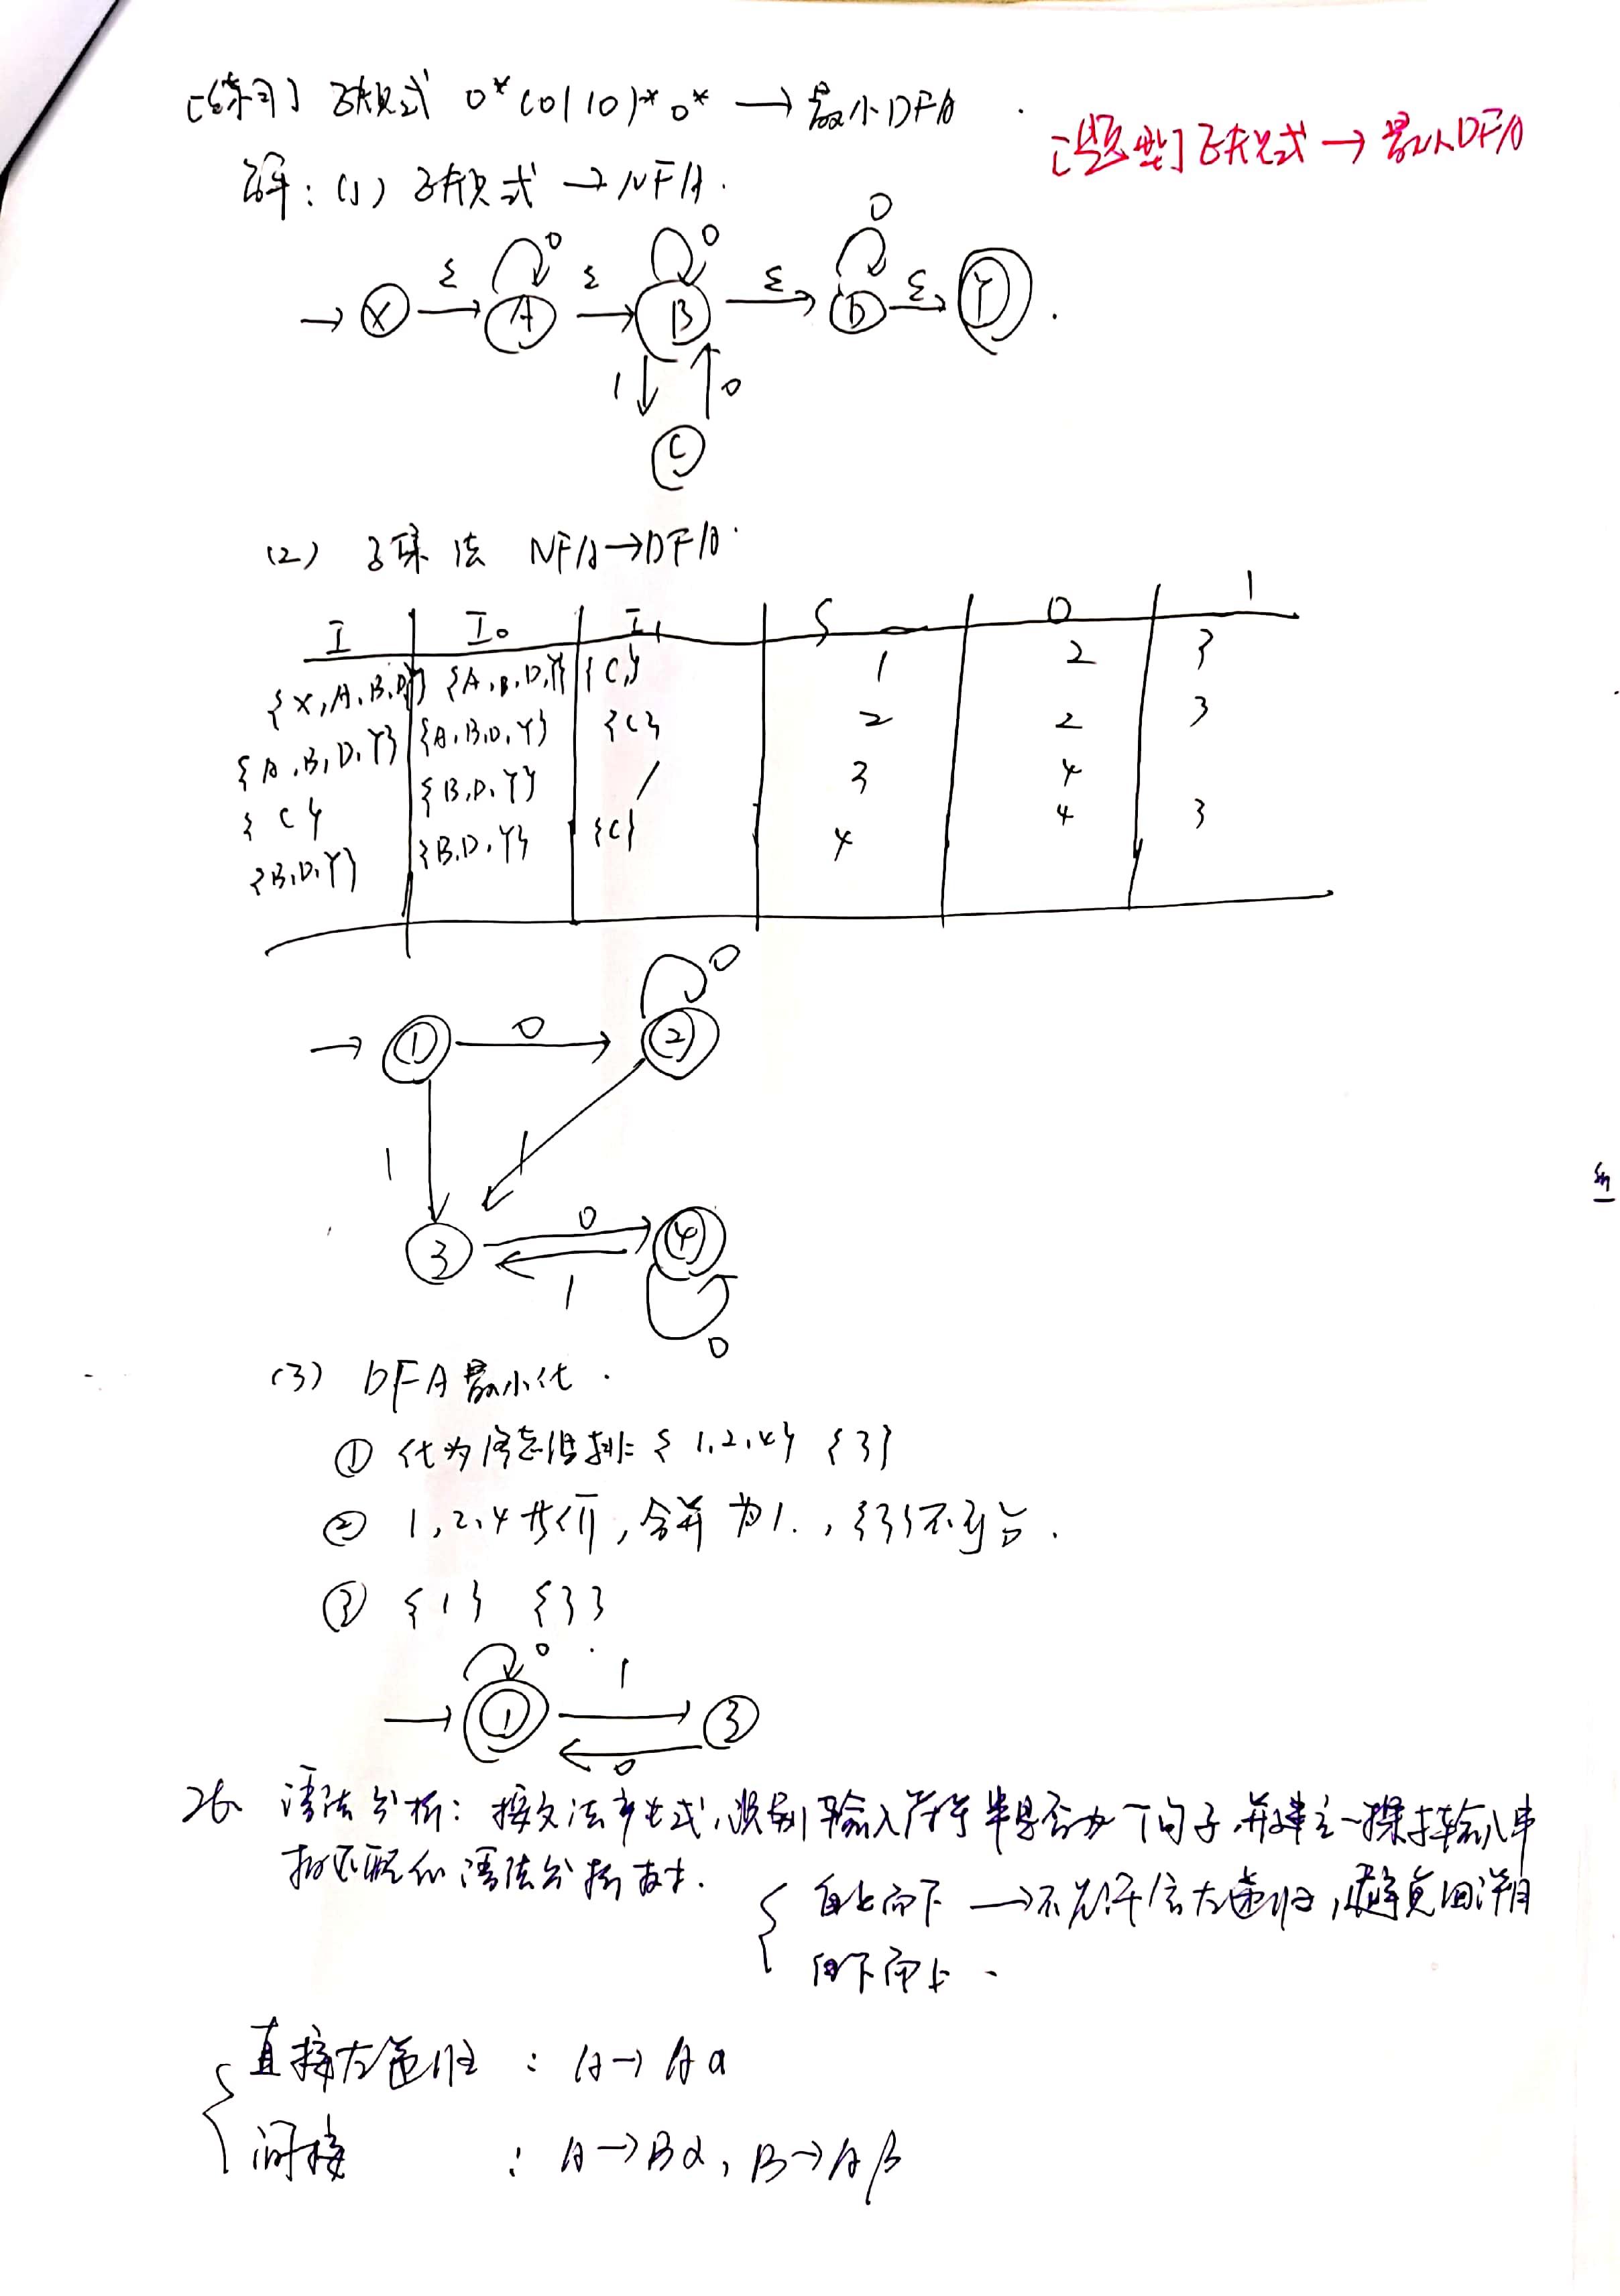 [练习] 正规式 0*(0|10)*0* → 最小DFA.
[题型] 正规式 → 最小DFA
解：(1) 正规式 → NFA.
→ X ε A 0 ε B 0 ε D 0 ε Y.
1 0
C
(2) 子集法 NFA→DFA.
I I₀ I₁ S 0 1
{X,A,B,D,Y} {A,B,D,Y} {C} 1 2 3
{A,B,D,Y} {A,B,D,Y} {C} 2 2 3
{C} {B,D,Y} / 3 4
{B,D,Y} {B,D,Y} {C} 4 4 3
0
→ ① 0 ②
1 1
③ 0 ④
1
0
(3) DFA最小化.
① 化为 {1,2,4} {3}
② 1,2,4等价，合并为1.，{3}不可分.
③ {1} {3}
0 1
→ ① ③
0
26 语法分析：按文法产生式，识别输入符号串是否为一个句子，并建立一棵与输入串
相匹配的语法分析树.
自上而下 → 不允许含左递归，避免回溯
自下而上.
直接左递归：A→Aa
间接：A→Bα，B→Aβ